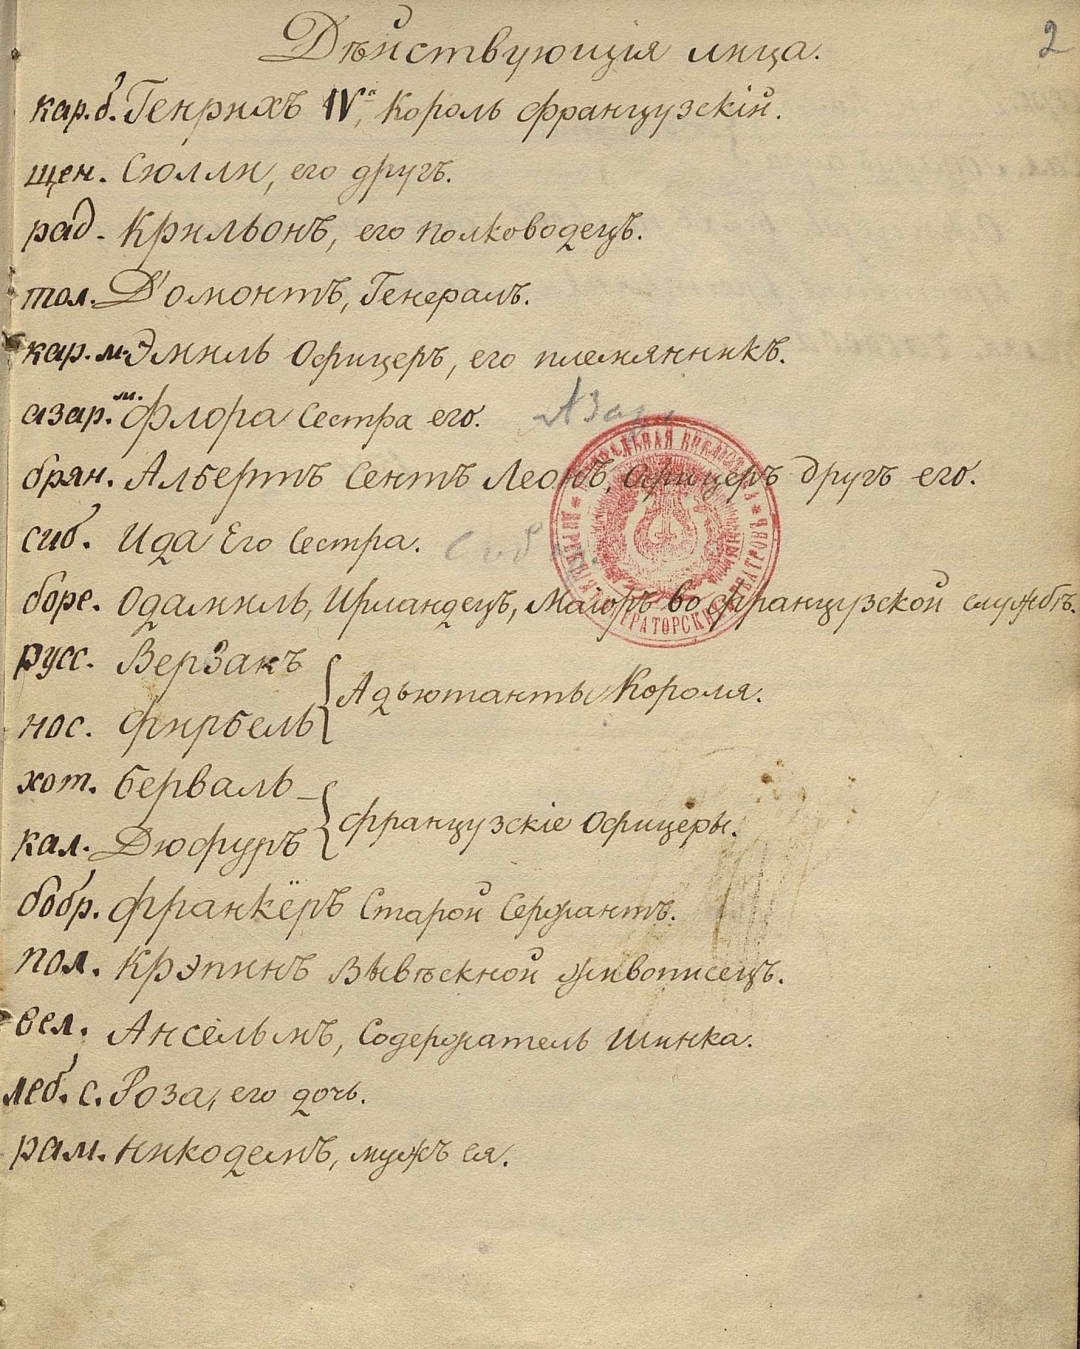 Дѣйствующія лица.
2
кар. б. Генрихъ IVй, Король французскій.
щен. Сюлли, его другъ.
рад. Крильонъ, его полководецъ.
тол. Д'омонтъ, Генералъ.
кар. м. Эмиль Офицеръ, его племянникъ.
азар. м. Флора Сестра его. Азар.
брян. Албертъ Сентъ Леонъ, офицеръ другъ его.
сиб. Ида Его Сестра. Сиб
боре. Одамиль, Ирландецъ, Маіоръ во французской службѣ.
русс. Верзакъ
Адъютанты Короля.
нос. Фирбель
хот. Берваль
французскіе Офицеры.
кал. Дюфуръ
бобр. Франкёръ Старой Сержантъ.
пол. Крэпинъ Вывѣскной живописецъ.
вел. Ансельмъ, Содержатель шинка.
леб. с. Роза, его дочь.
рам. Никодемъ, мужъ ея.